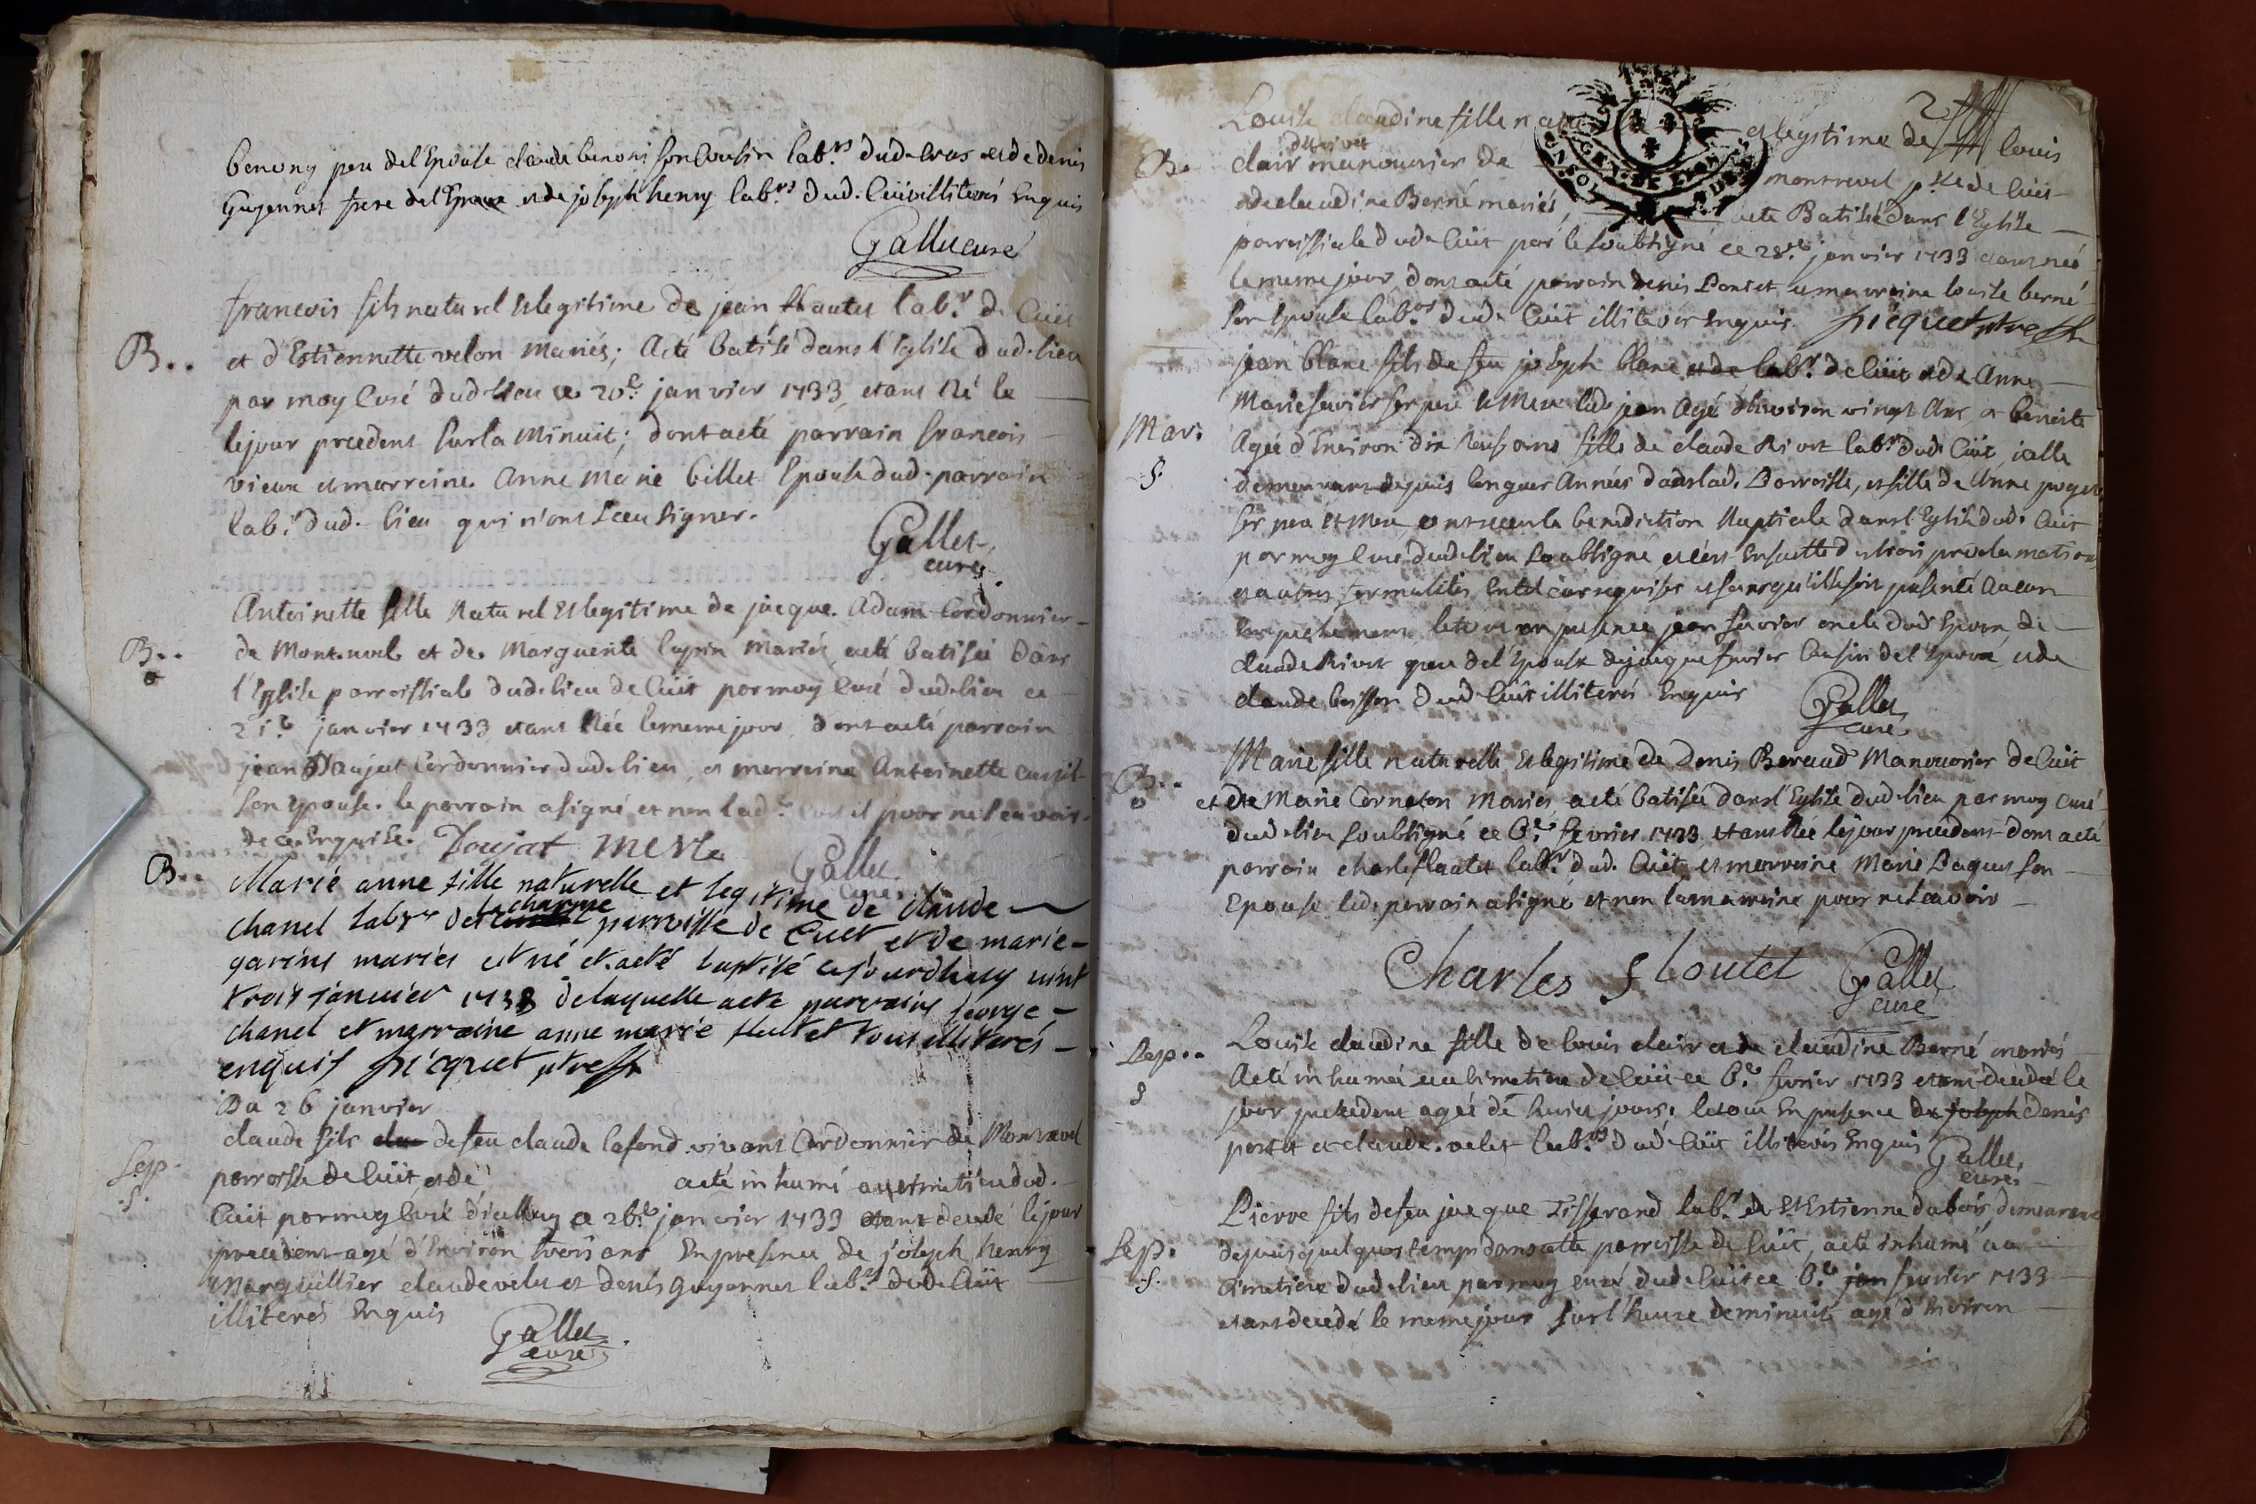 benony pere de l'Epouse claude benoni son Cousin lab.rs dud. Cras et de denis
Guyennet frere de l'Epoux et de joseph henry lab.rs dud. Cuit illiterés Enquis
Gallet curé
francois fils naturel et legitime de jean flautet lab.r de Cuit
B..
et d'Estiennette velon Mariés; A eté batisé dans l'Eglise dud. lieu
par moy Curé dud. lieu ce 20.e janvier 1733 etant Né le
le jour precedent sur la Minuit; dont a eté parrain francois
vieux et marreine Anne Marie billet Epouse dud. parrain
lab.r dud. lieu qui n'ont sceu signer.
Gallet
curé
Antoinette fille Naturel et legitime de jacque Adam Cordonnier
B..
de Montrevel et de Marguerite lupin Mariés, a eté batisée dans
l'Eglise parroissiale dud. lieu de Cuit par moy Curé dud. lieu ce
21.e janvier 1733 etant Née le meme jour, dont a eté parrain
jean Daujat Cordonnier dud. lieu, et marreine Antoinette
son Epouse. le parrain a signé et non lad. pour ne sçavoir
de ce Enquise. Doujat
Gallet
curé
B..
Marie anne fille naturelle et legitime de claude
chanel lab.r de la charme parroisse de Cuet et de marie
garins mariés et né et a eté baptisé ce jourdhuy vint
trois janvier 1733 de laquelle a eté parrains george
chanel et marraine anne marie flutet tous illiterés
enquis picquet ptre
Du 26 janvier
Sep.
S.
claude fils de feu claude lafond vivant Cordonnier de Montrevel
parroisse de Cuit et de a eté inhumé au cimetiere dud.
Cuit par moy Curé d'icelluy ce 26.e janvier 1733 etant decedé le jour
precedent agé d'Environ trois ans En presence de joseph henry
Marguillier claude velet et denis guyennet lab.rs dud. Cuit
illiterés Enquis
Gallet
curé
2
Louise claudine fille nat et legitime de louis
B.
clair manouvrier de montrevel p.sse de Cuit
et de claudine Berné mariés, a eté Batisée dans l'Eglise
parroissiale dud. Cuit par le soubsigné ce 28.e janvier 1733 etant née
le meme jour, dont a eté parrain denis Pontet et marreine louise berné
son Epouse lab.rs dud. Cuit illiterés Enquis. picquet ptre
jean blanc fils de feu joseph blanc et de lab.r de Cuit et de Anne
Mar.
S.
Marie favier ses pere et Mere led. jean Agé d'Environ vingt Ans, et benoite
Agée d'Environ dix Neuf ans fille de claude Rivet lab.r dud. Cuit, icelle
demeurant depuis longues Années dans lad. Parroisse, et fille de Anne
ses pere et Mere, ont receu la benediction Nuptiale dans l'Eglise dud. Cuit
par moy Curé dud. lieu soubsigné et ce Ensuitte des trois proclamations
et autres formalités En tel cas requises et sans qu'il se soit presenté Aucun
Empechement le tout en presence jean favier oncle dud. Epoux, de
claude Rivet pere de l'Epouse de jacque favier Cousin de l'Epoux, et de
claude buisson dud. Cuit illiterés Enquis
Gallet
curé
Marie fille naturelle et legitime de Denis Beraud Manouvrier de Cuit
B..
et de Marie Corneton Mariés a eté batisée dans l'Eglise dud. lieu par moy curé
dud. lieu soubsigné ce 6.e fevrier 1733 etant Née le jour precedent dont a eté
parrain charle flautet lab.r dud. Cuit, et marreine Marie Paquet son
Epouse led. parrain a signé et non la marreine pour ne sçavoir
Charles floutet Gallet
curé
Sep..
S
Louise claudine fille de louis clair et de claudine Berné mariés
A eté inhumée au cimetiere de Cuit ce 6.e fevrier 1733 etant decedée le
jour precedent agée de huict jours, le tout En presence de joseph denis
pontet et claude velet lab.rs dud. Cuit illiterés Enquis
Gallet
curé
Pierre fils de feu jacque Tisserand lab.r de St Estienne du bois, demeurant
Sep.
S.
depuis quelques temps dans cette parroisse de Cuit, a eté inhumé au
cimetiere dud. lieu par moy curé dud. Cuit ce 6.e jan fevrier 1733
etant decedé le meme jour sur l'heure de minuit agé d'Environ